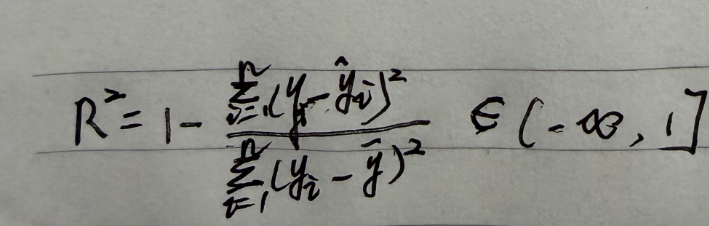 R² = 1 - \frac{\sum_{i=1}^{n} (y_i - \hat{y}_i)^2}{\sum_{i=1}^{n} (y_i - \bar{y})^2} ∈ (-∞, 1]